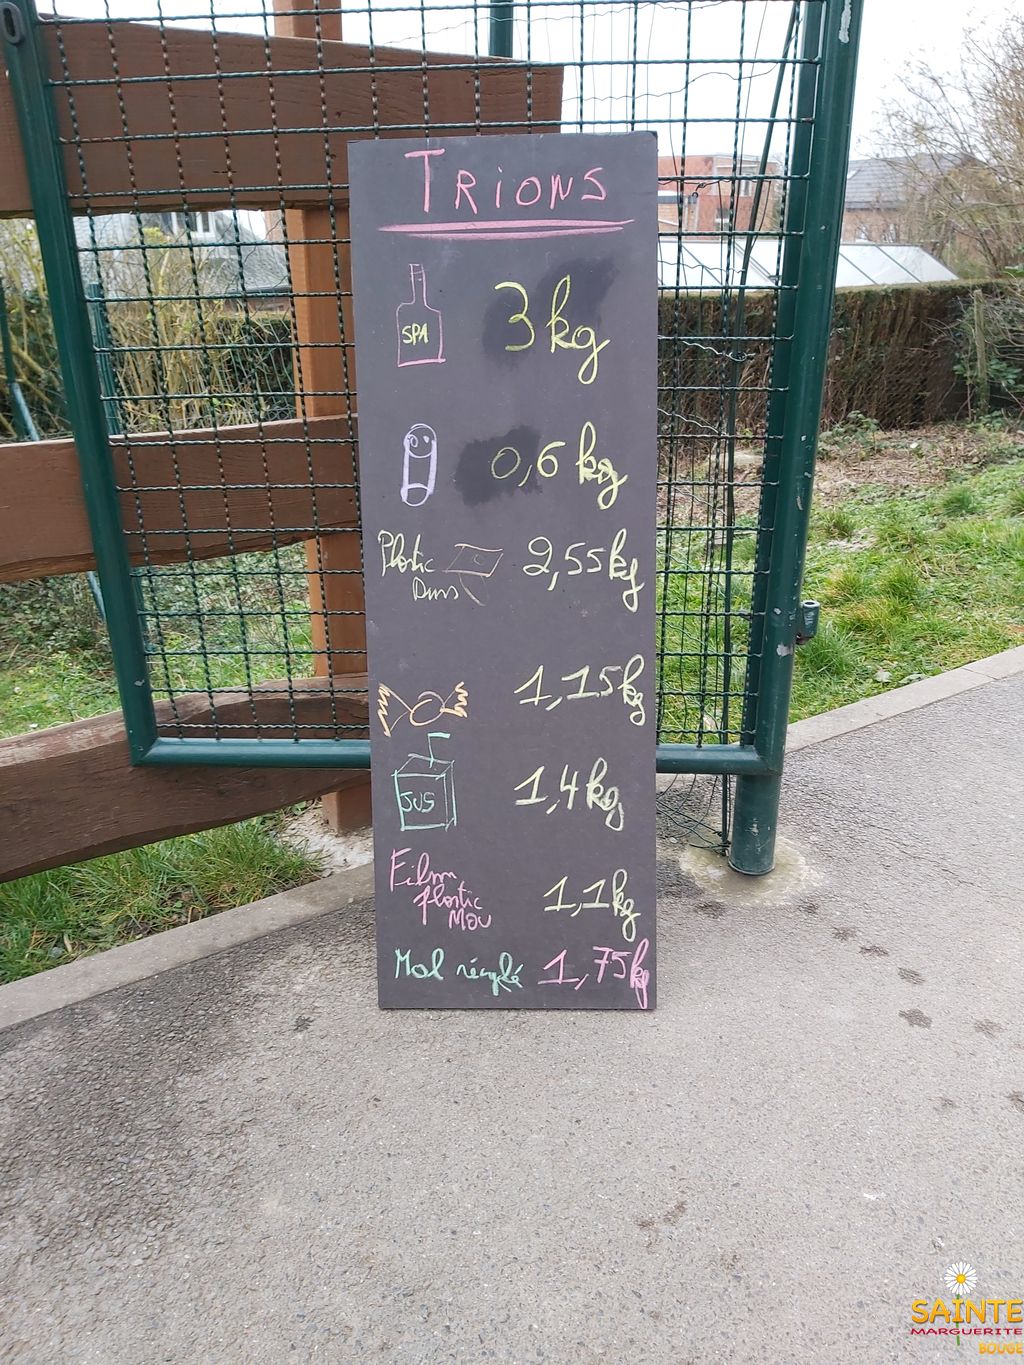 TRiONS
SPA 3 kg
0,6 kg
Plastic 2,55kg
Durs
1,15kg
JUS 1,4kg
Film
plastic 1,1kg
MOU
Mal récyclé 1,75kg
SAINTE
MARGUERITE
BOUGE